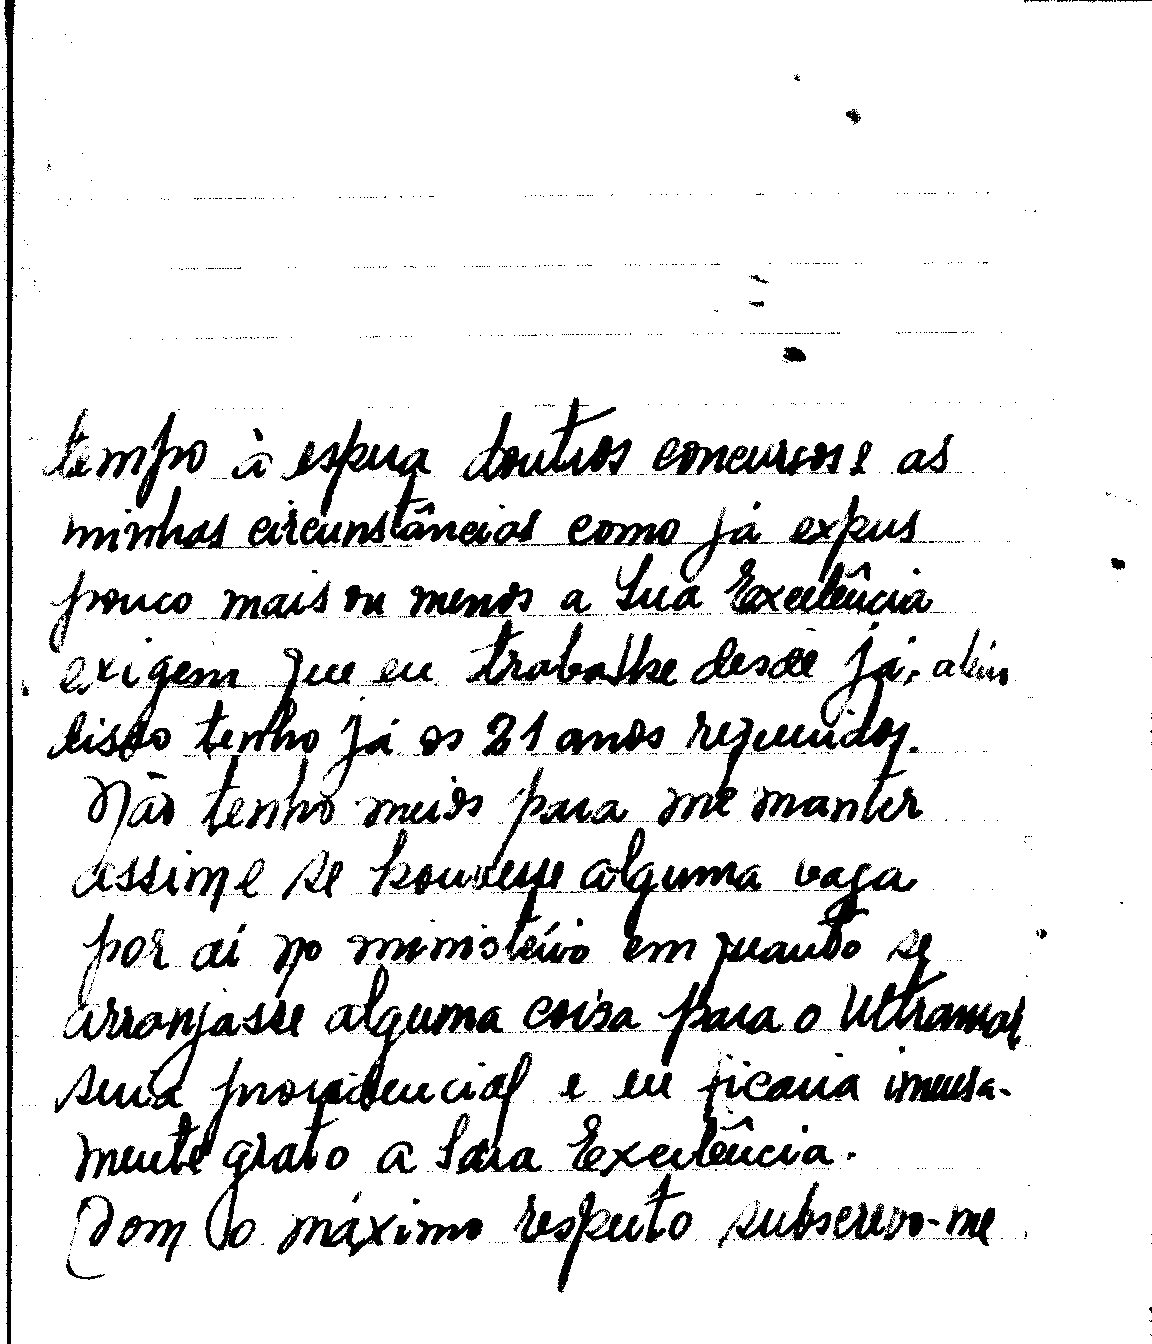 tempo à espera doutros concursos e as
minhas circunstâncias como já expus
pouco mais ou menos a Sua Excelência
exigem que eu trabalhe desde já, além
disso tenho já os 21 anos requeridos.
Não tenho meios para me manter
assim e se houvesse alguma vaga
por aí no ministério em quanto se
arranjasse alguma coisa para o Ultramar
seria providencial e eu ficaria imensa-
mente grato a Sua Excelência.
Com o máximo respeito subscrevo-me